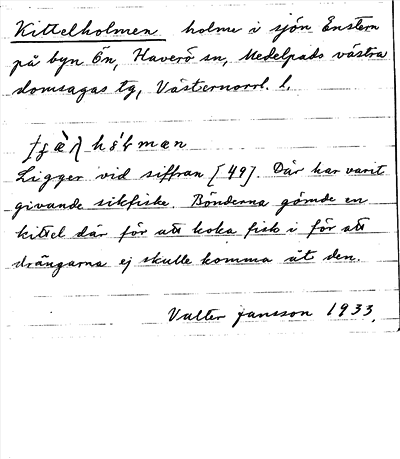 Kittelholmen holme i sjön Enstern
på byn Ön, Haverö sn, Medelpads västra
domsagas tg, Västernorrl. l.
Ligger vid siffran [49]. Där har varit
givande sikfiske. Bönderna gömde en
kittel där för att koka fisk i för att
drängarna ej skulle komma åt den.
Valter Jansson 1933.